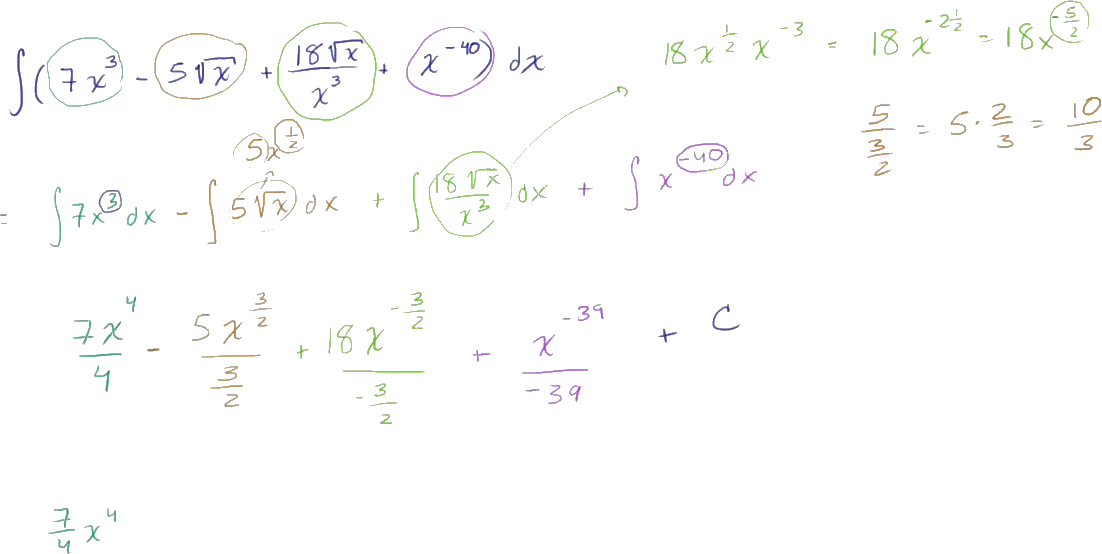 ∫(7x³ - 5√x + 18√x/x³ + x⁻⁴⁰) dx
18 x^{1/2} x^{-3} = 18 x^{-2 1/2} = 18x^{-5/2}
5/(3/2) = 5 · 2/3 = 10/3
5x^{1/2}
= ∫7x³ dx - ∫5√x dx + ∫18√x/x³ dx + ∫x⁻⁴⁰ dx
7x⁴/4 - 5x^{3/2}/(3/2) + 18x^{-3/2}/(-3/2) + x⁻³⁹/-39 + C
7/4 x⁴